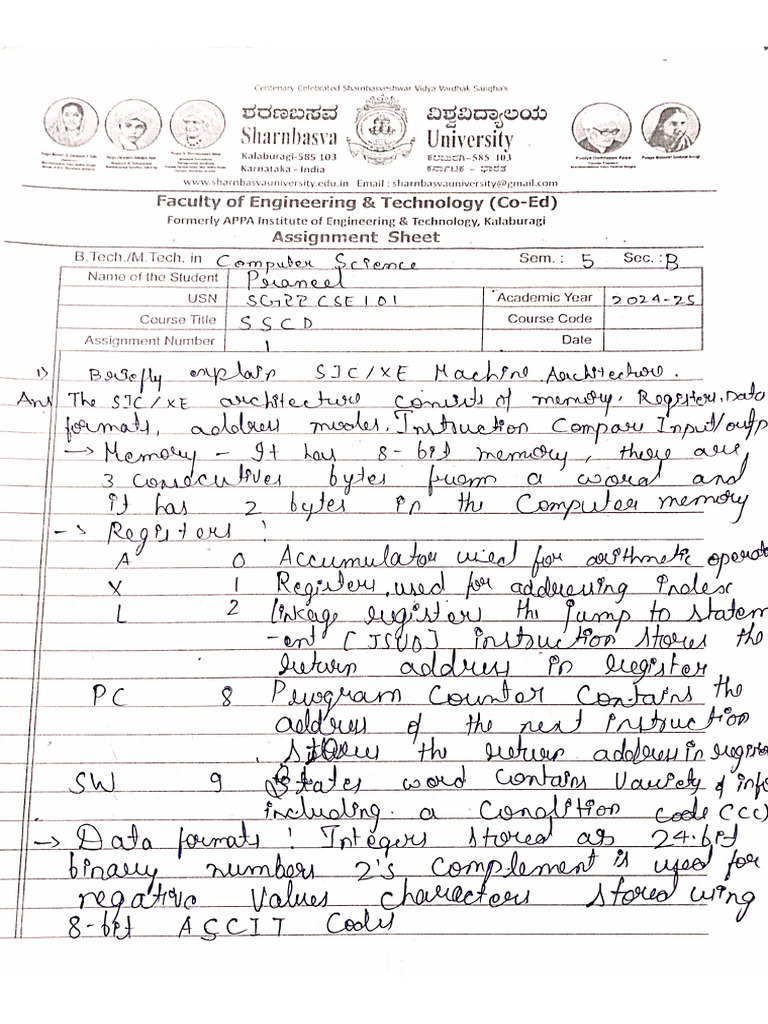 Centenary Celebrated Sharnbasveshwar Vidya Vardhak Sangha's
ಶರಣಬಸವ ವಿಶ್ವವಿದ್ಯಾಲಯ
Sharnbasva University
Kalaburagi-585 103 ಕಲಬುರಗಿ-585 103
Karnataka - India ಕರ್ನಾಟಕ - ಭಾರತ
www.sharnbasvauniversity.edu.in Email : sharnbasvauniversity@gmail.com
Faculty of Engineering & Technology (Co-Ed)
Formerly APPA Institute of Engineering & Technology, Kalaburagi
Assignment Sheet
B.Tech./M.Tech. in Computer Science Sem. : 5 Sec. : B
Name of the Student Piraneel
USN SG22CSE101 Academic Year 2024-25
Course Title SSCD Course Code
Assignment Number 1 Date
1) Briefly explain SIC/XE Machine Architecture.
Ans The SIC/XE architecture consists of memory, Registers, Data
formats, address modes, Instruction Compare Input/outp
→ Memory - It has 8-bit memory, there are
3 consecutives bytes from a word and
it has 2 bytes in the Computer memory
→ Registers :
A 0 Accumulator used for arithmetic operat
X 1 Registers, used for addressing index
L 2 Linkage registers the jump to statem
-ent [JSUB] instruction stores the
return address in register
PC 8 Program Counter Contains the
address of the next instruction
the return address in registe
SW 9 States word contains Variety of info
including a Condition code (CC)
→ Data formats : Integers stored as 24-bit
binary numbers 2's complement is used for
negative values characters stored using
8-bit ASCIT Codes